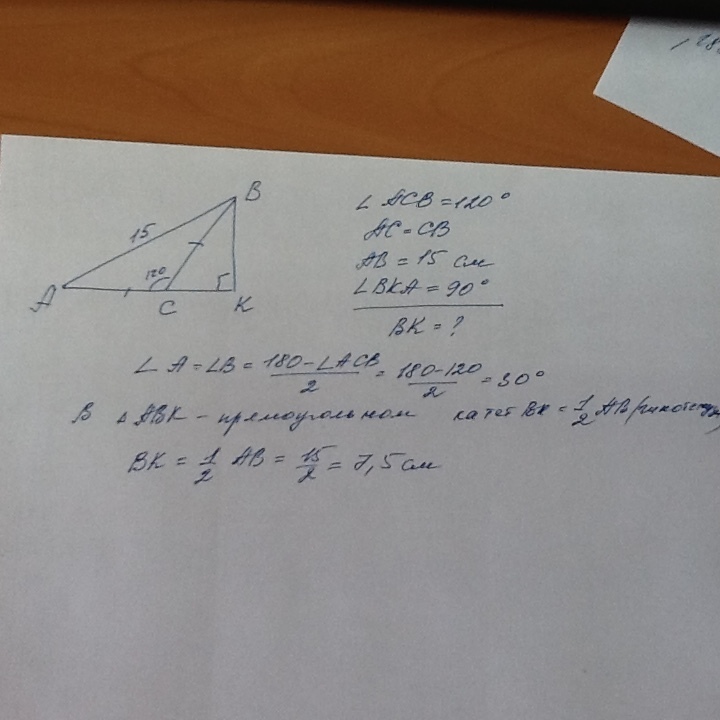 B
15
120
A
C
K
∠ ACB = 120°
AC = CB
AB = 15 см
∠BKA = 90°
BK = ?
∠ A = ∠B = (180-∠ACB)/2 = (180-120)/2 = 30°
В △ ABK - прямоугольном катет BK = 1/2 AB (гипотенузы)
BK = 1/2 AB = 15/2 = 7,5 см